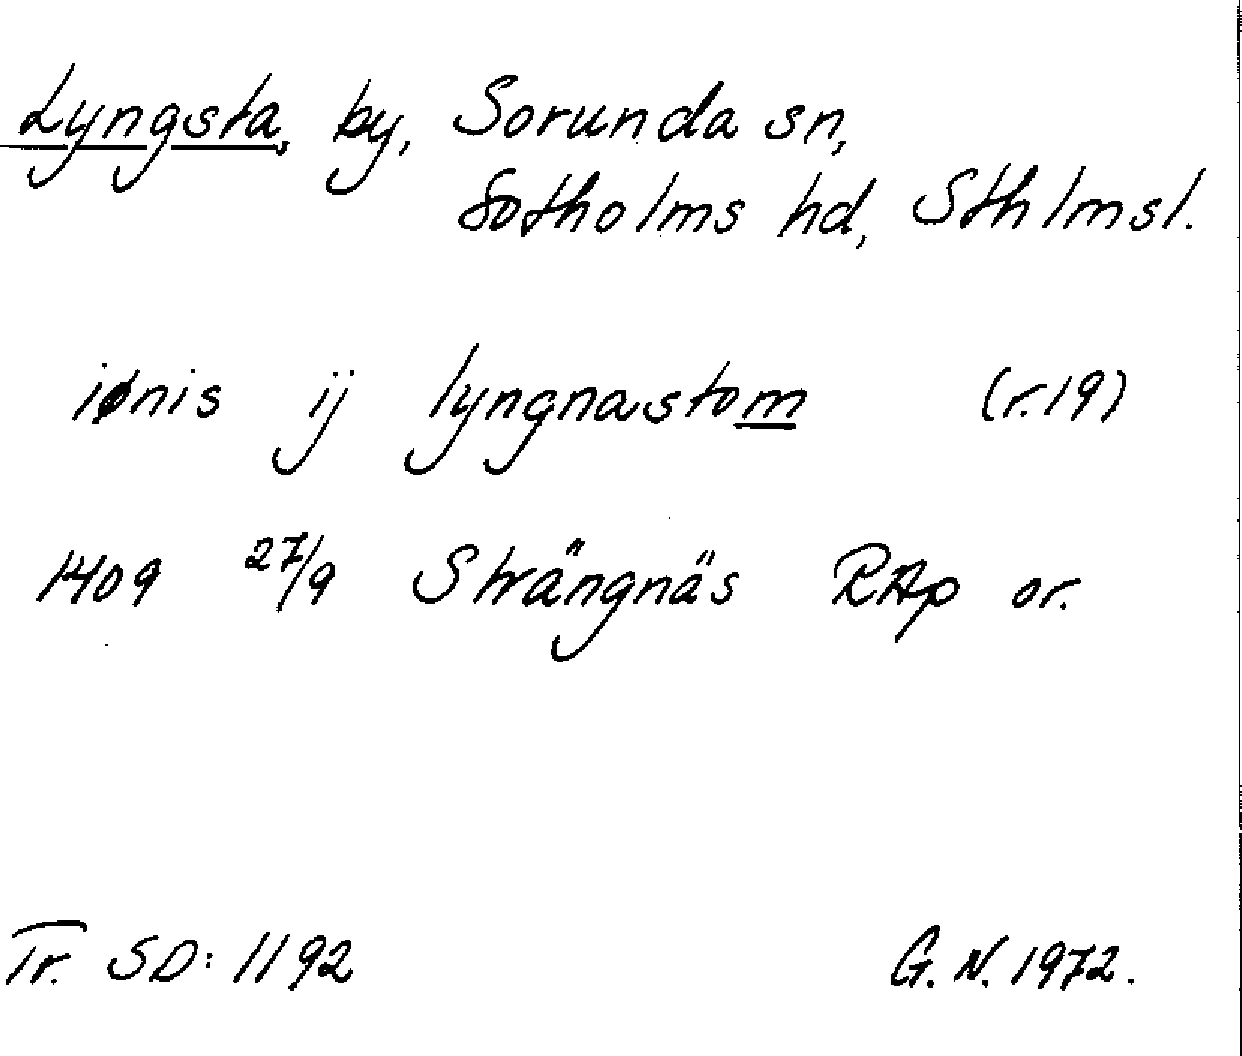 Lyngsta, by, Sorunda sn,
Sotholms hd, Sthlmsl.
iønis ij lyngnastom (r.19)
1409 27/9 Strängnäs RAp or.
Tr. SD: 1192 G. N. 1972.